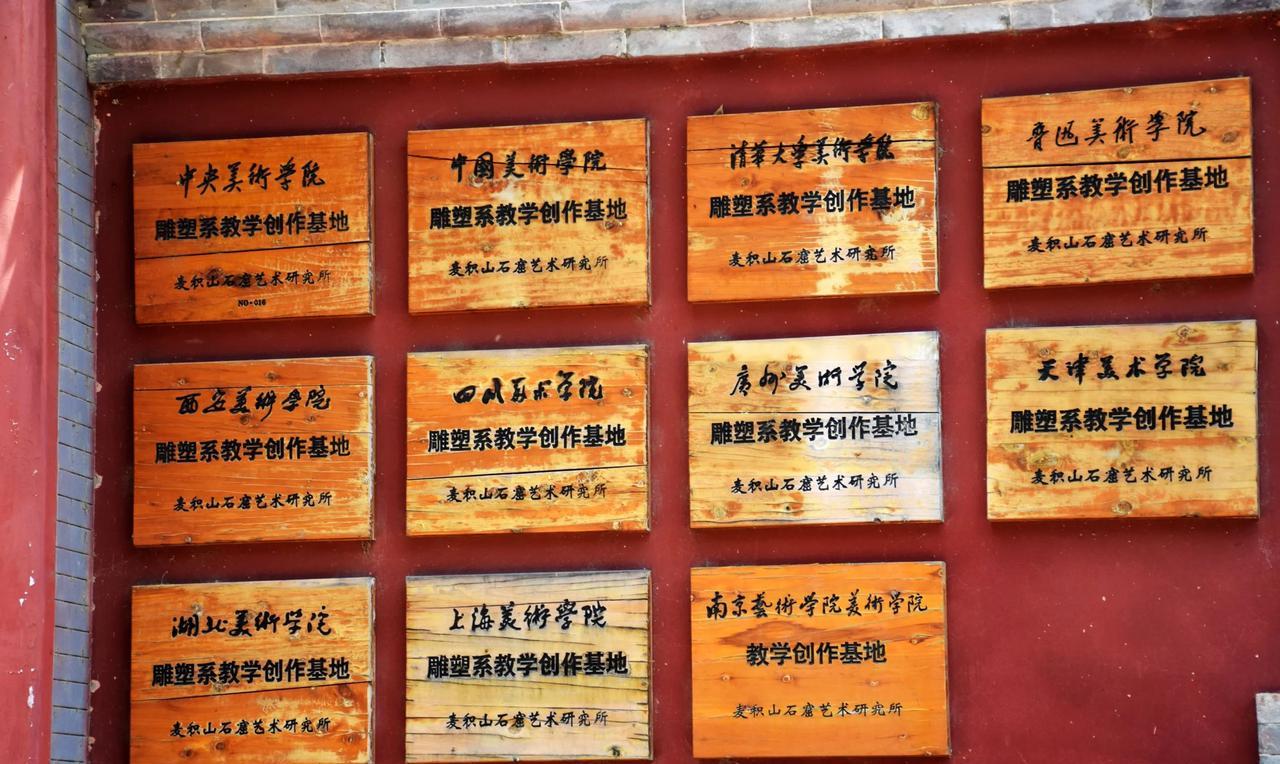 中央美術学院
雕塑系教学创作基地
麦积山石窟艺术研究所
NO·016
中國美術學院
雕塑系教学创作基地
麦积山石窟艺术研究所
清華大学美術学院
雕塑系教学创作基地
麦积山石窟艺术研究所
魯迅美術学院
雕塑系教学创作基地
麦积山石窟艺术研究所
西安美術学院
雕塑系教学创作基地
麦积山石窟艺术研究所
四川美术学院
雕塑系教学创作基地
麦积山石窟艺术研究所
廣州美術学院
雕塑系教学创作基地
麦积山石窟艺术研究所
天津美术学院
雕塑系教学创作基地
麦积山石窟艺术研究所
湖北美術学院
雕塑系教学创作基地
麦积山石窟艺术研究所
上海美術學院
雕塑系教学创作基地
麦积山石窟艺术研究所
南京藝術学院美術学院
教学创作基地
麦积山石窟艺术研究所